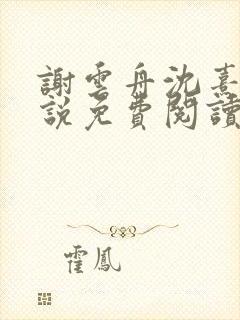 謝雲舟沈熹
說免費閱讀
霍鳳